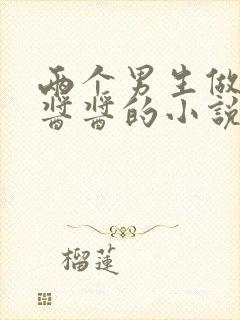 两个男生做
酱酱的小説
榴蓮